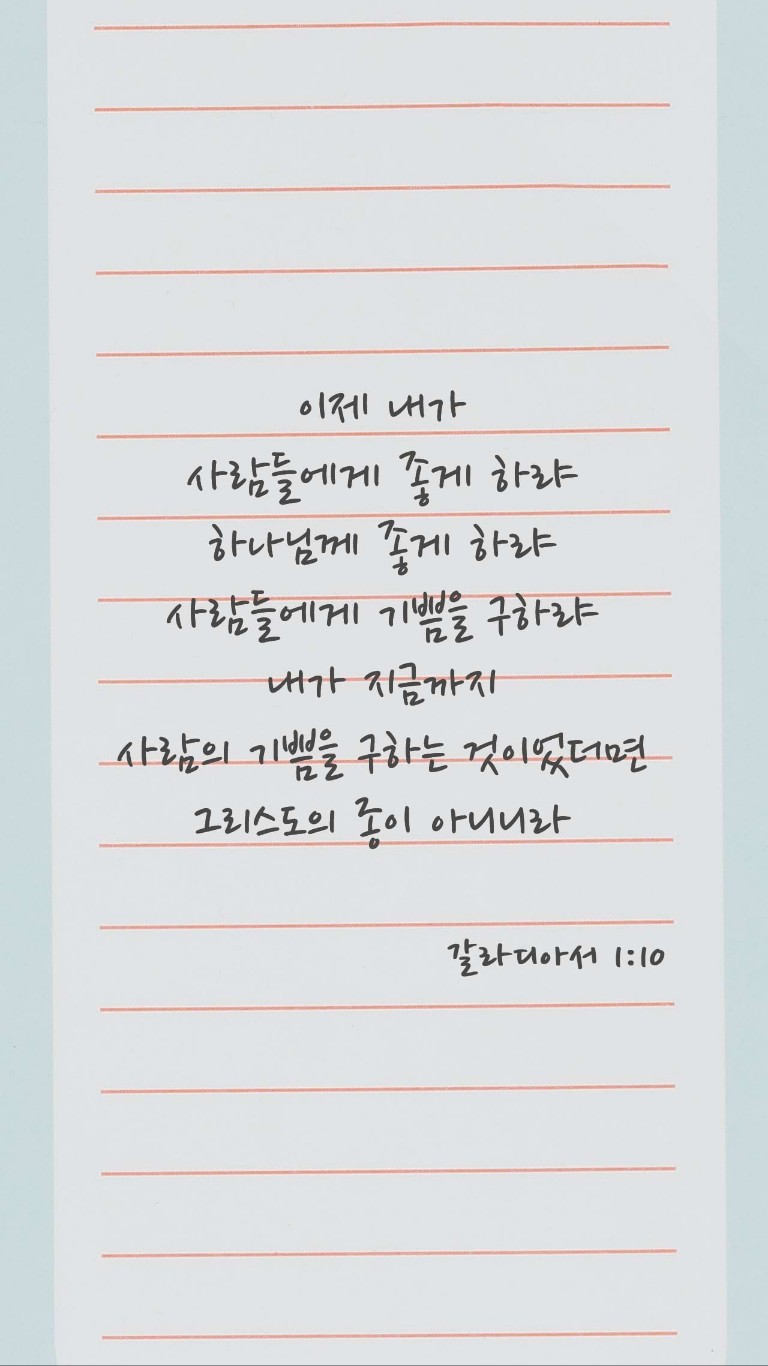 이제 내가
사람들에게 좋게 하랴
하나님께 좋게 하랴
사람들에게 기쁨을 구하랴
내가 지금까지
사람의 기쁨을 구하는 것이었더면
그리스도의 종이 아니니라
갈라디아서 1:10